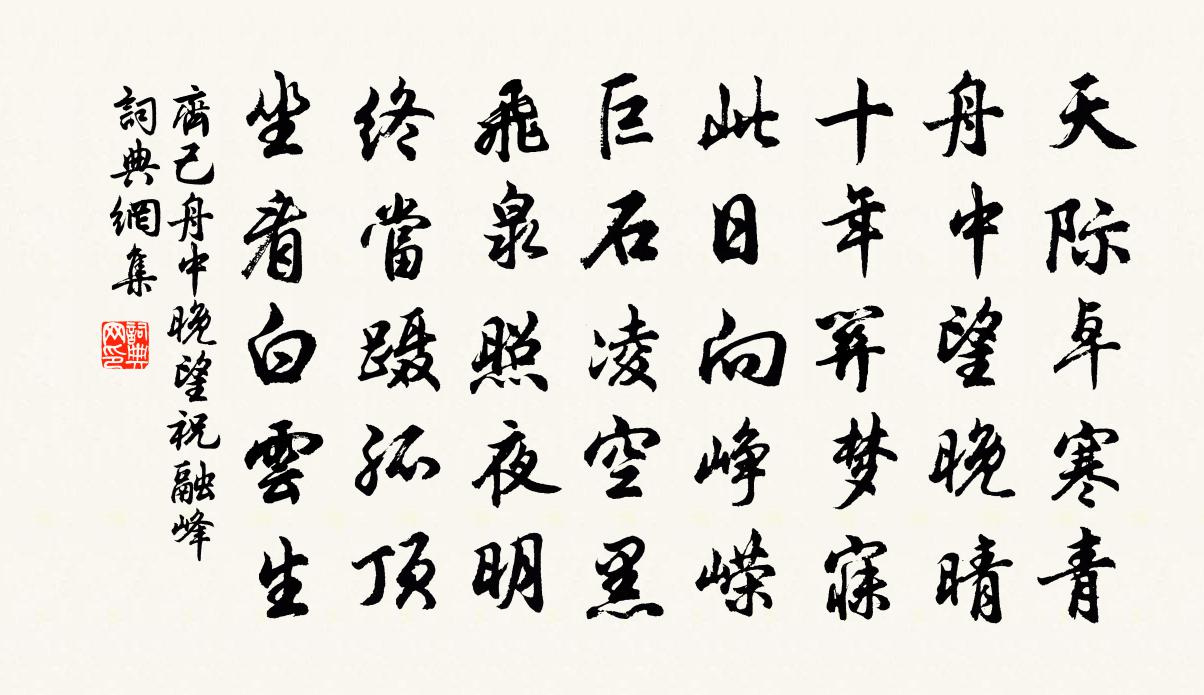 天际卓寒青
舟中望晚晴
十年关梦寐
此日向峥嵘
巨石凌空黑
飛泉照夜明
终當蹑孤顶
坐看白雲生
齊己舟中晚望祝融峰
詞典網集
詞典网印